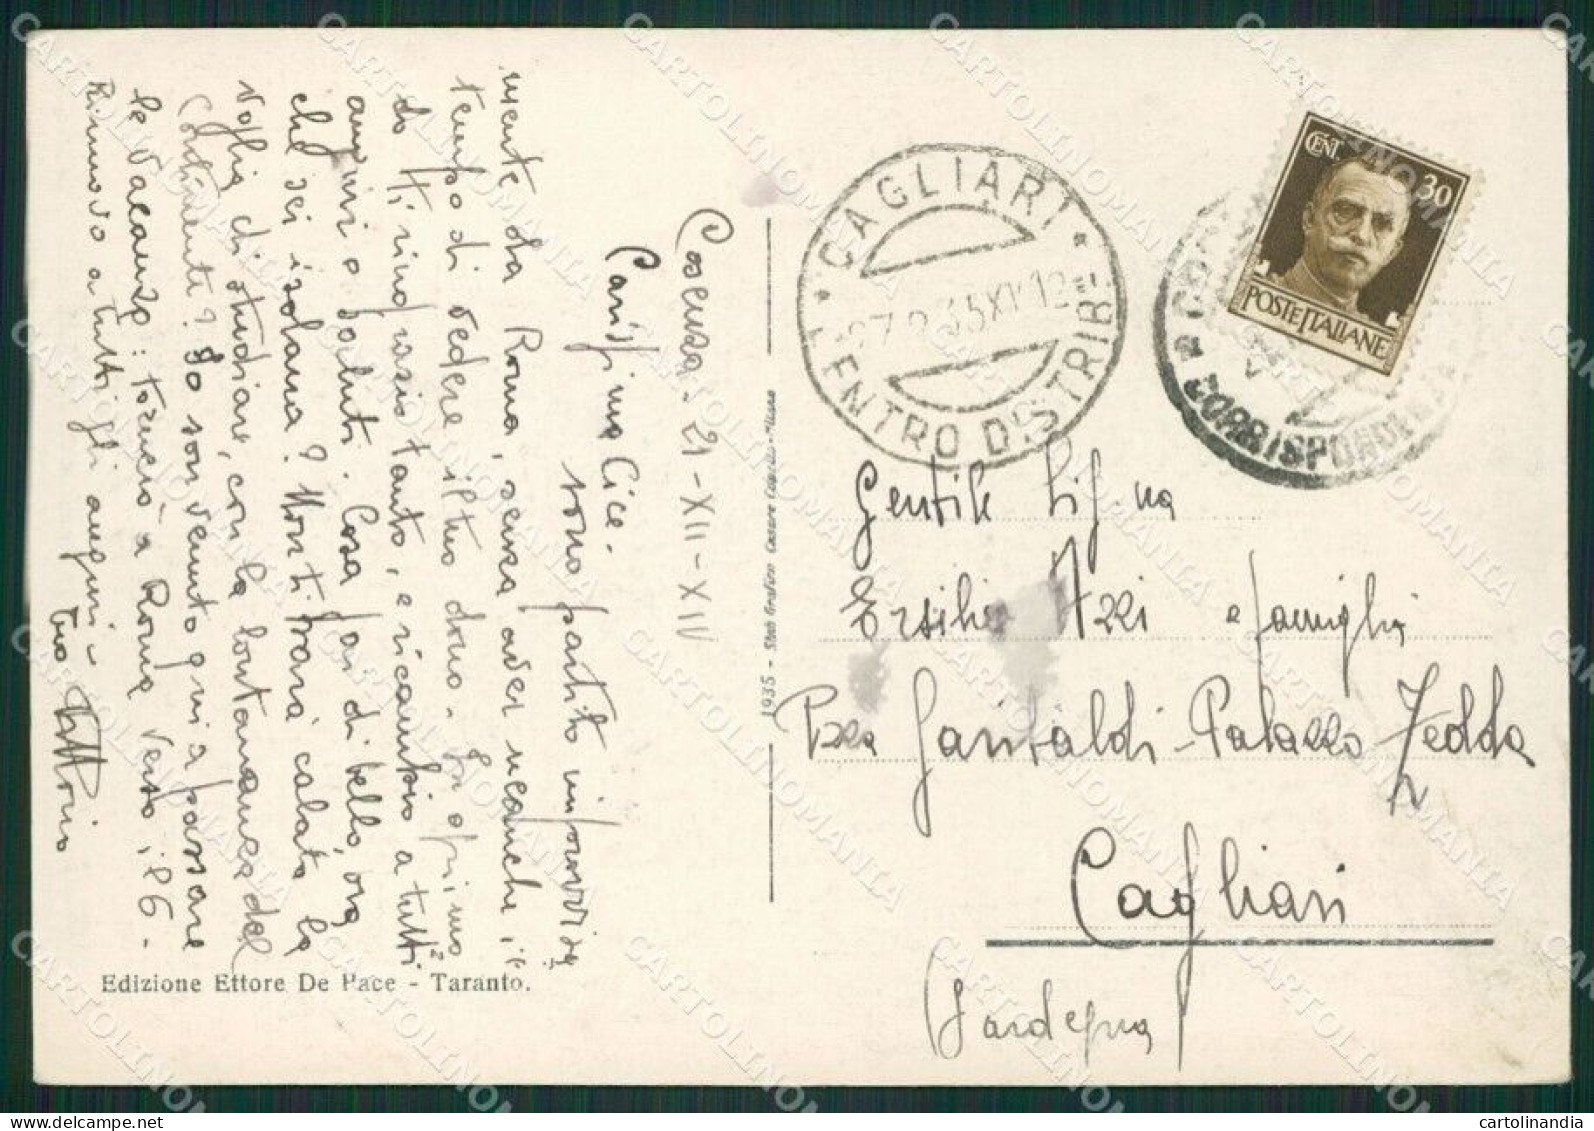 Cosenza - 21-XII-XIV
Carissima Cice.
sono partito improvvisa
mente da Roma, senza aver neanche il
tempo di vedere il tuo dono. In ogni modo
ti ringrazio tanto, e ricambio a tutti
auguri e saluti. Cosa fai di bello, ora
che sei isolana? Non ti sarà calata la
voglia di studiare, con la lontananza del
Continente? Io son venuto qui a passare
le vacanze: tornerò a Roma verso il 6.
Rinnovo a tutti gli auguri -
tuo Vittorio
Edizione Ettore De Pace - Taranto.
1935 - Stab Grafico Cesare Capello - Milano
CAGLIARI
CENTRO DISTRIB
35 XIV 12
CENT. 30
POSTE ITALIANE
CORRISPONDENZE
Gentile Sig.na
Ersilia Azzi e famiglia
P.zza Garibaldi - Palazzo Zedda
Cagliari
(Sardegna)
CARTOLINOMANIA
cartolinandia